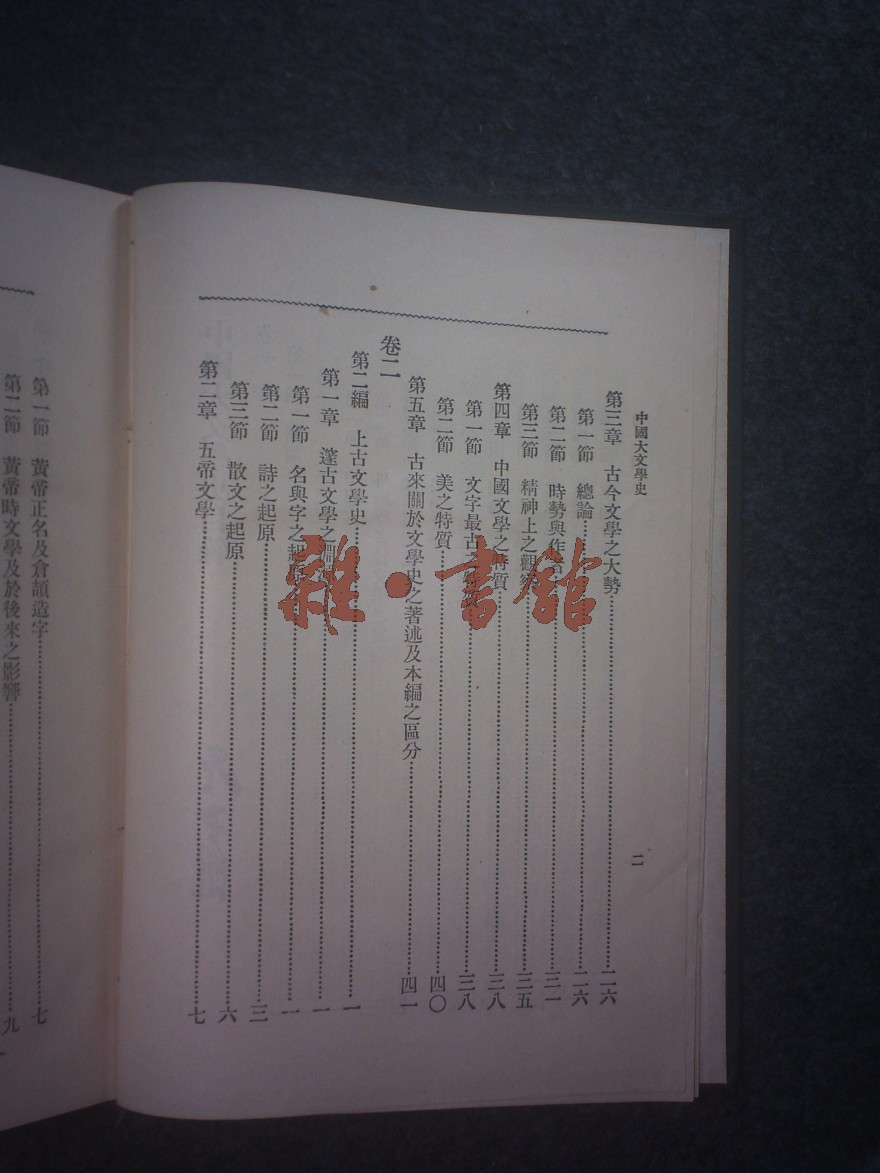 中國大文學史
二
第三章 古今文學之大勢 二六
第一節 總論 二六
第二節 時勢與作者 三一
第三節 精神上之觀察 三五
第四章 中國文學之特質 三八
第一節 文字最古 三八
第二節 美之特質 四〇
第五章 古來關於文學史之著述及本編之區分 四一
卷二
第二編 上古文學史 一
第一章 邃古文學之淵源 一
第一節 名與字之起原 一
第二節 詩之起原 三
第三節 散文之起原 六
第二章 五帝文學 七
第一節 黃帝正名及倉頡造字 七
第二節 黃帝時文學及於後來之影響 九
雜·書館